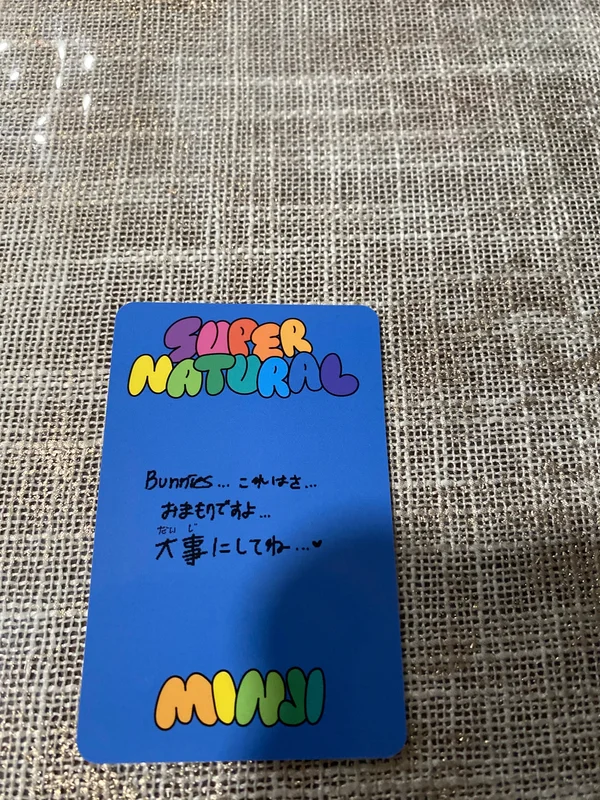 SUPER
NATURAL
Bunnies... これはさ...
おまもりですよ...
だいじ
大事にしてね...♥
MINJI